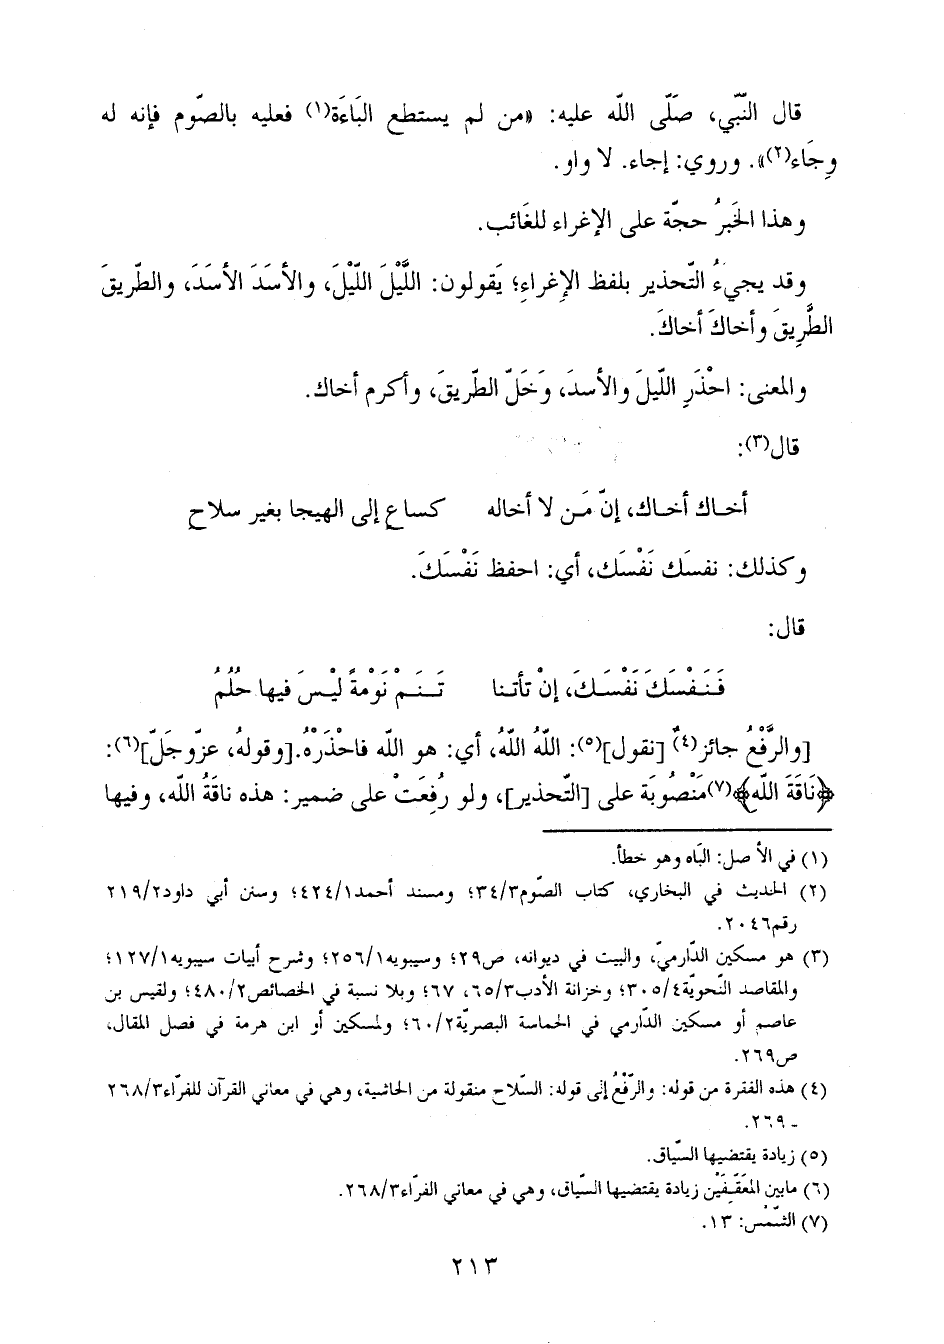 قال النّبّي، صَلّى اللّه عليه: «من لم يستطع البَاءَة(١) فعليه بالصّوم فإنه له
وِجَاء(٢)». وروي: إجاء. لا واو.
وهذا الخَبرُ حجّة على الإغراء للغَائب.
وقد يجيءُ التّحذير بلفظ الإغراءِ؛ يَقولون: اللَّيْلَ اللّيْلَ، والأسَدَ الأسَدَ، والطّريقَ
الطَّرِيقَ وأخاكَ أخاكَ.
والمعنى: احْذَرِ اللّيلَ والأسدَ، وَخَلّ الطّريقَ، وأكرم أخاك.
قال(٣):
أخـاك أخـاك، إنّ مَـن لا أخاله كساعٍ إلى الهيجا بغير سلاح
وكذلك: نفسَك نَفْسَك، أي: احفظ نَفْسَكَ.
قال:
فَـنَـفْسَكَ نَفْسَـكَ، إنْ تأتـنا تَـنَـمْ نَوْمةً ليْسَ فيها حُلُمُ
[والرَّفْعُ جائز(٤) [نقول](٥): اللّهُ اللّهُ، أي: هو اللّه فاحْذَرْهُ.[وقولهُ، عزّوجَلّ](٦):
﴿نَاقَةَ اللّه﴾(٧)مَنْصُوبَة على [التّحذير]، ولو رُفِعَتْ على ضمير: هذه ناقَةُ اللّه، وفيها
(١) في الأصل: البَاه وهو خطأ.
(٢) الحديث في البخاري، كتاب الصّوم٣٤/٣؛ ومسند أحمد٤٢٤/١؛ وسنن أبي داود٢١٩/٢
رقم٢٠٤٦.
(٣) هو مسكين الدّارميّ، والبيت في ديوانه، ص٢٩؛ وسيبويه٢٥٦/١؛ وشرح أبيات سيبويه١٢٧/١؛
والمقاصد النّحويّة٣٠٥/٤؛ وخزانة الأدب٦٥/٣، ٦٧؛ وبلا نسبة في الخصائص٤٨٠/٢؛ ولقيس بن
عاصم أو مسكين الدّارمي في الحماسة البصريّة٦٠/٢؛ ولمسكين أو ابن هرمة في فصل المقال،
ص٢٦٩.
(٤) هذه الفقرة من قوله: والرّفْعُ إلى قوله: السّلاح منقولة من الحاشية، وهي في معاني القرآن للفرّاء٢٦٨/٣
ـ ٢٦٩.
(٥) زيادة يقتضيها السّياق.
(٦) مابين المعَقّفَيْن زيادة يقتضيها السّياق، وهي في معاني الفرّاء٢٦٨/٣.
(٧) الشّمْس: ١٣.
٢١٣